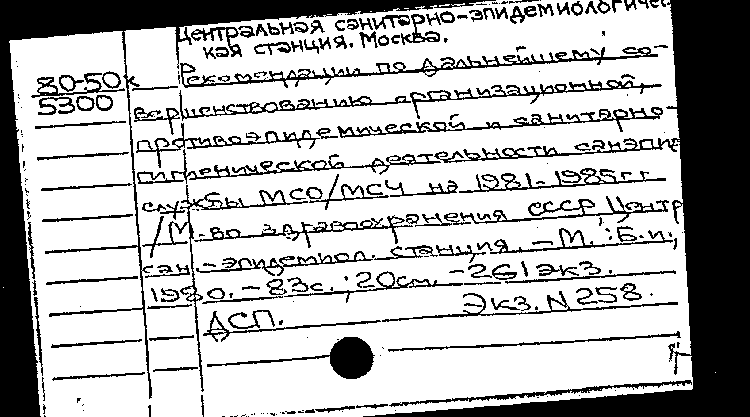 Центральная санитарно-эпидемиологичес
кая станция. Москва.
80-50к Рекомендации по дальнейшему со-
5300 вершенствованию организационной,
противоэпидемической и санитарно-
гигиенической деятельности санэпид
службы МСО/МСЧ на 1981-1985гг.
/М-во здравоохранения СССР. Центр.
сан.-эпидемиол. станция. - М.: Б.и.,
1980. - 83с.; 20см. - 261экз.
ДСП. Экз. N 258.